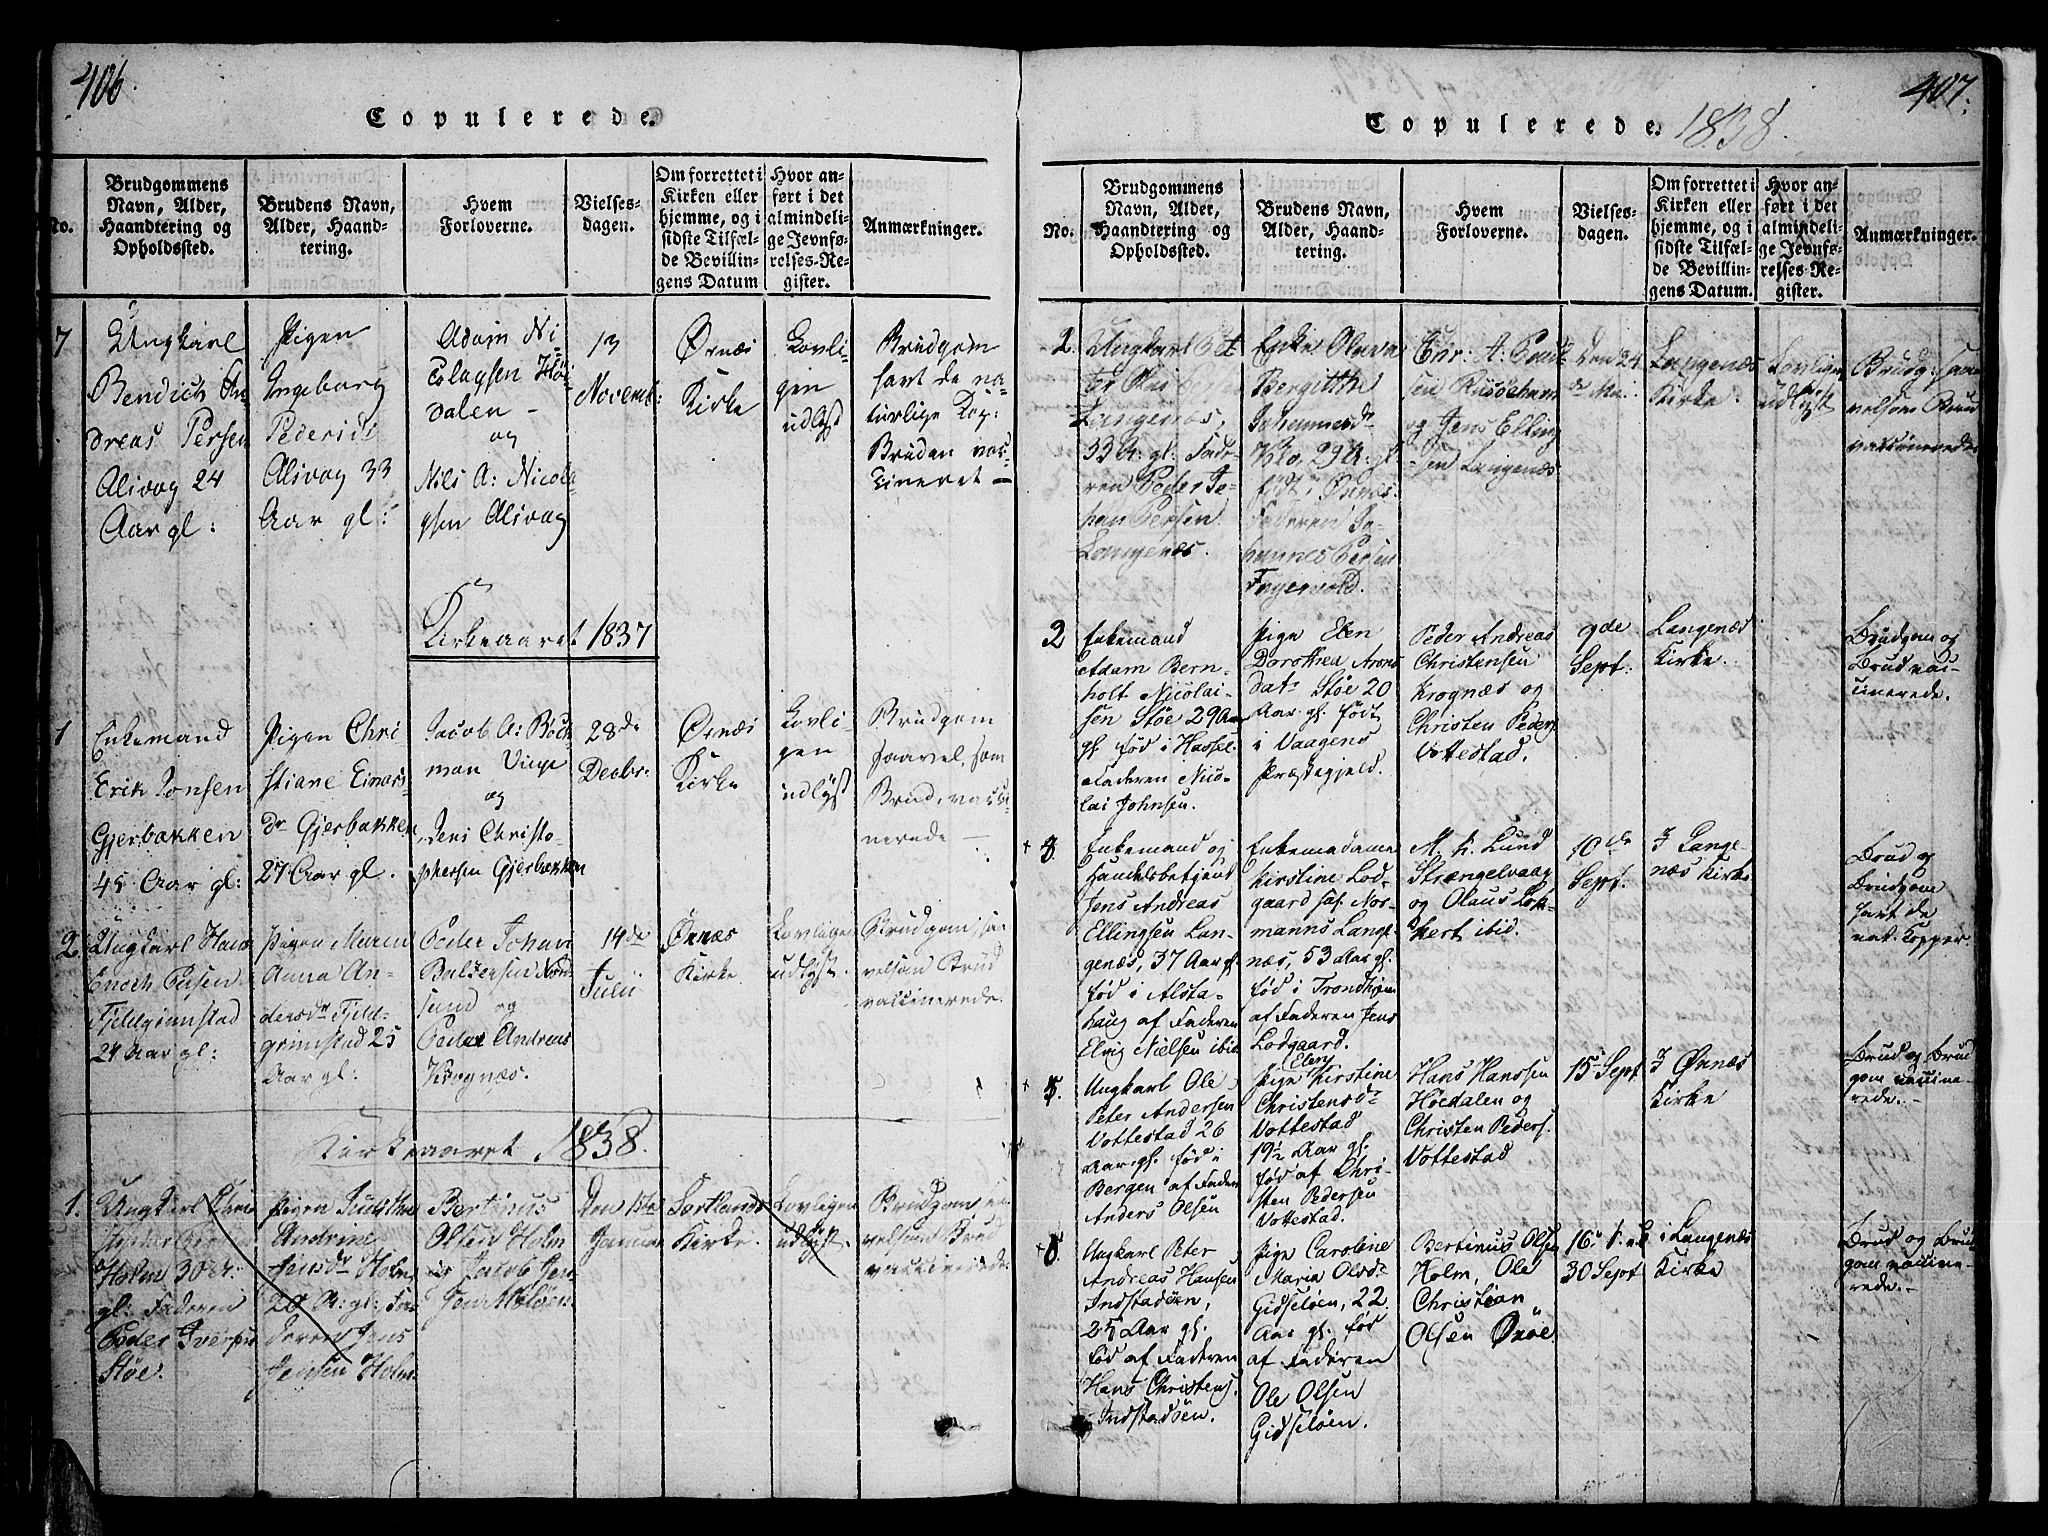 406.
Copulerede.
No.
Brudgommens
Navn, Alder,
Haandtering og
Opholdssted.
Brudens Navn,
Alder, Haand-
tering.
Hvem
Forloverne.
Vielses-
dagen.
Om forrettet i
Kirken eller
hjemme, og i
sidste Tilfæl-
de Bevillin-
gens Datum
Hvor an-
ført i det
almindeli-
ge Jevnfø-
relses-Re-
gister.
Anmærkninger.
7
Ungkarl
Bendich An
dreas Persen
Alsvog 24
Aar gl:
Pigen
Ingeborg
Pedersdr
Alsvog 33
Aar gl:
Adam Ni
colaysen Høi
dalen -
og
Nils A: Nicola
ysen Alsvog
13
Novemb:
Ørnæs
Kirke
Lovli-
gen
udlyst
Brudgom
havt de na-
turlige Kop:
Bruden vac-
cineret -
Kirkeaaret 1837
1
Enkemand
Erik Jonsen
Gjerbakken
45 Aar gl:
Pigen Chri
stiane Einars-
Dr Gjerbakken
27 Aar gl.
Jacob A: Bech
man Vinje
og
Jens Christo-
phersen Gjerbakken
28de
Decbr:
Ørnæs
Kirke
Lovli
gen
udlyst
Brudgom
saavel, som
Brud, vacci-
nerede -
2
Ungkarl Hans
Enoch
Fjeldgrimstad
24 Aar gl:
Pigen Maren
Anna An-
dersdr Fjeld-
grimstad 25
Aar gl:
Peder Johan
sund og
Peder Andreas
Krognæs.
14de
Julii
Ørnæs
Kirke.
Lovligen
udlyst.
Brudgom, saa
velsom Brud
vaccinerede.
Kirkeaaret 1838.
1.
Ungkarl
Holm 30 A:
gl: Faderen
Peder Iversen
Støe.
Pigen
Andrine
Jensdr Holm
20 A: gl: Fa
deren Jens
Jensen Holm.
Bertinus
Olsen Holm
og Jacob Jen
sen Meløen.
Den 1ste
Januar
Sortlands
Kirke.
Lovligen
udlyst.
Brudgom, saa
velsom Brud
vaccinerede.
407.
Copulerede. 1838.
No.
Brudgommens
Navn, Alder,
Haandtering og
Opholdssted.
Brudens Navn,
Alder, Haand-
tering.
Hvem
Forloverne.
Vielses-
dagen.
Om forrettet i
Kirken eller
hjemme, og i
sidste Tilfæl-
de Bevillin-
gens Datum.
Hvor an-
ført i det
almindeli-
ge Jevnfø-
relses-Re-
gister.
Anmærkninger.
2.
Ungkarl
Langenæs,
33 A: gl: Fade-
ren Peder Jo-
han Persen
Langenæs.
Enke Olava
Bergitthe
Johannesdr
Klo, 29 A: gl
født i Ørnæs.
Faderen Jo-
hannes Persen
Tngervold.
Chr: A: Paul
sen Russehavn
og Jens Elling
sen Langenæs
Den 24
de Mai
Langenæs
Kirke.
Lovligen
udlyst
Brudg: saa
velsom Brud
vaccinerede
2
Enkemand
Adam Bern-
holt Nicolai-
sen Støe 29 Aar
gl. fød i Hassel
af Faderen Nico-
lai Johnsen.
Pige Elen
Dorothea Arons
datr Støe 20
Aar gl. født
i Vaagens
Præstegjeld.
Peder Andreas
Christensen
Krognæs og
Christen Peders.
Vottestad.
9de
Sept:
Langenæs
Kirke.
Brudgom og
Brud vac-
cinerede.
Enkemand og
Handelsbetjent
Jens Andreas
Ellingsen Lan-
genæs, 37 Aar gl.
fød i Alsta-
haug af Faderen
Elvig Nielsen ibid.
Enkemadame
Kirstine Lod-
gaard sal. Nor-
manns Lange-
næs, 53 Aar gl.
fød i Trondhjem
af Faderen Jens
Lodgaard.
M. H. Lund
Strengelvaag
og Olaus Lok-
kert ibid.
10de
Sept.
I Lange
næs Kirke
Brud og
Brudgom
havt de
nat. Kopper
5.
Ungkarl Ole
Peter Andersen
Vottestad 26
Aar gl. fød i
Bergen af Faderen
Anders Olsen
Elen
Pige Kirstine
Christensdr
Vottestad
19½ Aar gl.
fød af Chri-
sten Pedersen
Vottestad.
Hans Hanssen
Høedalen og
Christen Peders.
Vottestad
15 Sept
I Ørnæs
Kirke
Brud og Brud
gom vaccine-
rede.-
Ungkarl Peter
Andreas Hansen
Indstadøen,
25 Aar gl.
fød af Faderen
Hans Christens.
Indstadøen.
Pige Caroline
Maria Olsdr
Gidsløen, 22
Aar gl. fød
af Faderen
Ole Olsen
Gidsløen.
Bertinus Olsen
Holm, Ole
Christian
Olsen Oxøe
30 Sept
i Langenæs
Kirke
Brud og Brud
gom vaccine-
rede.-